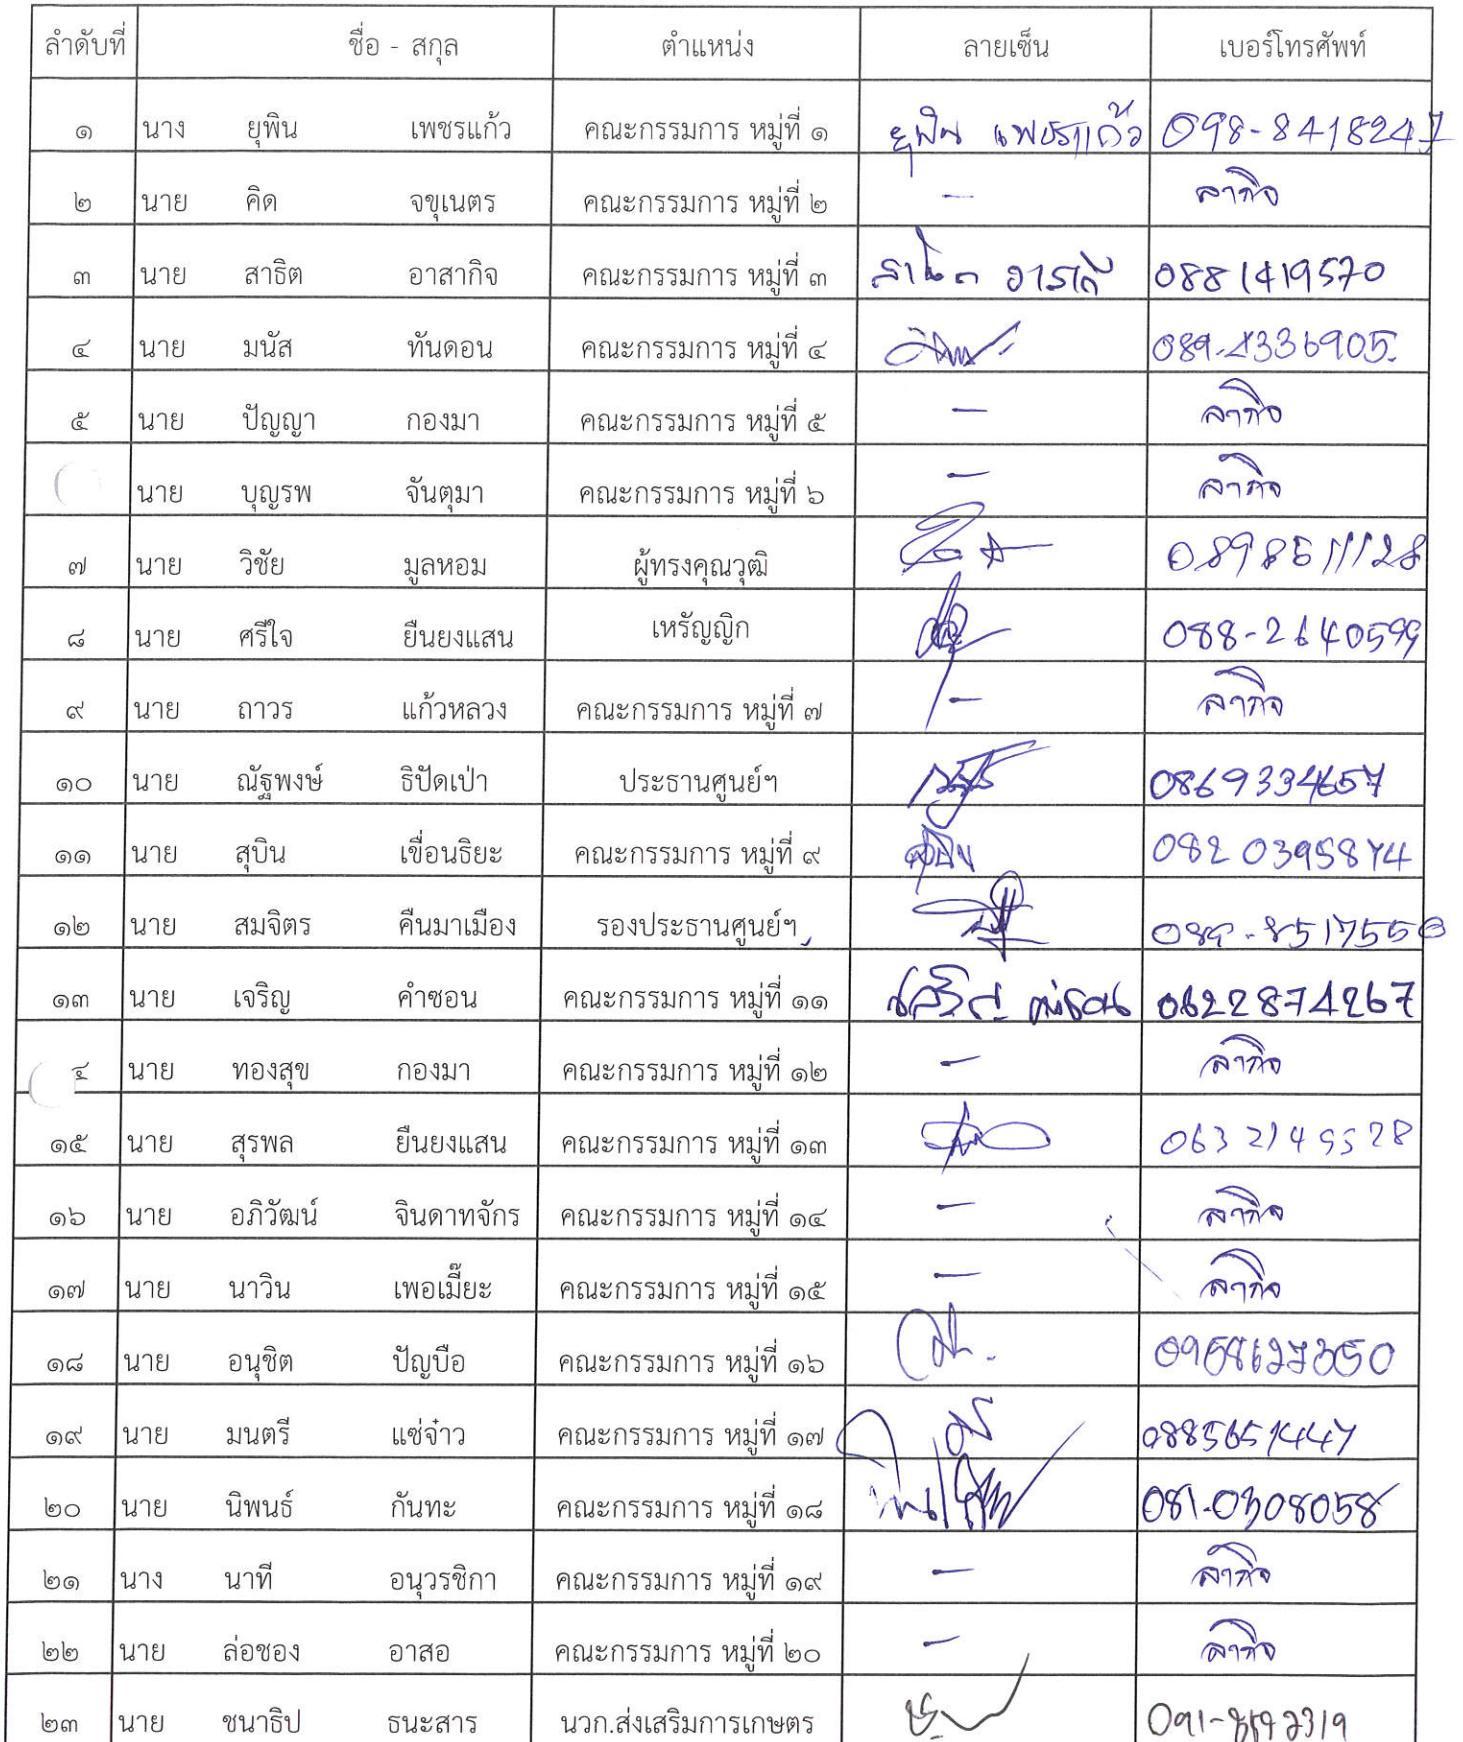 ลำดับที่ ชื่อ - สกุล ตำแหน่ง ลายเซ็น เบอร์โทรศัพท์
๑ นาง ยุพิน เพชรแก้ว คณะกรรมการ หมู่ที่ ๑ ยุพิน เพชรแก้ว 098-8418247
๒ นาย คิด จขุเนตร คณะกรรมการ หมู่ที่ ๒ - ลากิจ
๓ นาย สาธิต อาสากิจ คณะกรรมการ หมู่ที่ ๓ 0881419570
๔ นาย มนัส ทันดอน คณะกรรมการ หมู่ที่ ๔
๕ นาย ปัญญา กองมา คณะกรรมการ หมู่ที่ ๕ - ลากิจ
นาย บุญรพ จันตุมา คณะกรรมการ หมู่ที่ ๖ - ลากิจ
๗ นาย วิชัย มูลหอม ผู้ทรงคุณวุฒิ 0898511128
๘ นาย ศรีใจ ยืนยงแสน เหรัญญิก 088-2640599
๙ นาย ถาวร แก้วหลวง คณะกรรมการ หมู่ที่ ๗ - ลากิจ
๑๐ นาย ณัฐพงษ์ ธิปัดเป่า ประธานศูนย์ฯ 0869334657
๑๑ นาย สุบิน เขื่อนธิยะ คณะกรรมการ หมู่ที่ ๙ สุบิน 0820395874
๑๒ นาย สมจิตร คืนมาเมือง รองประธานศูนย์ฯ
๑๓ นาย เจริญ คำซอน คณะกรรมการ หมู่ที่ ๑๑ เจริญ คำซอน 0622874267
๔ นาย ทองสุข กองมา คณะกรรมการ หมู่ที่ ๑๒ - ลากิจ
๑๕ นาย สุรพล ยืนยงแสน คณะกรรมการ หมู่ที่ ๑๓ 0632149528
๑๖ นาย อภิวัฒน์ จินดาทจักร คณะกรรมการ หมู่ที่ ๑๔ - ลากิจ
๑๗ นาย นาวิน เพอเมี๊ยะ คณะกรรมการ หมู่ที่ ๑๕ - ลากิจ
๑๘ นาย อนุชิต ปัญบือ คณะกรรมการ หมู่ที่ ๑๖
๑๙ นาย มนตรี แซ่จ๋าว คณะกรรมการ หมู่ที่ ๑๗ 0885651447
๒๐ นาย นิพนธ์ กันทะ คณะกรรมการ หมู่ที่ ๑๘ 081-0308058
๒๑ นาง นาที อนุวรชิกา คณะกรรมการ หมู่ที่ ๑๙ - ลากิจ
๒๒ นาย ล่อชอง อาสอ คณะกรรมการ หมู่ที่ ๒๐ - ลากิจ
๒๓ นาย ชนาธิป ธนะสาร นวก.ส่งเสริมการเกษตร